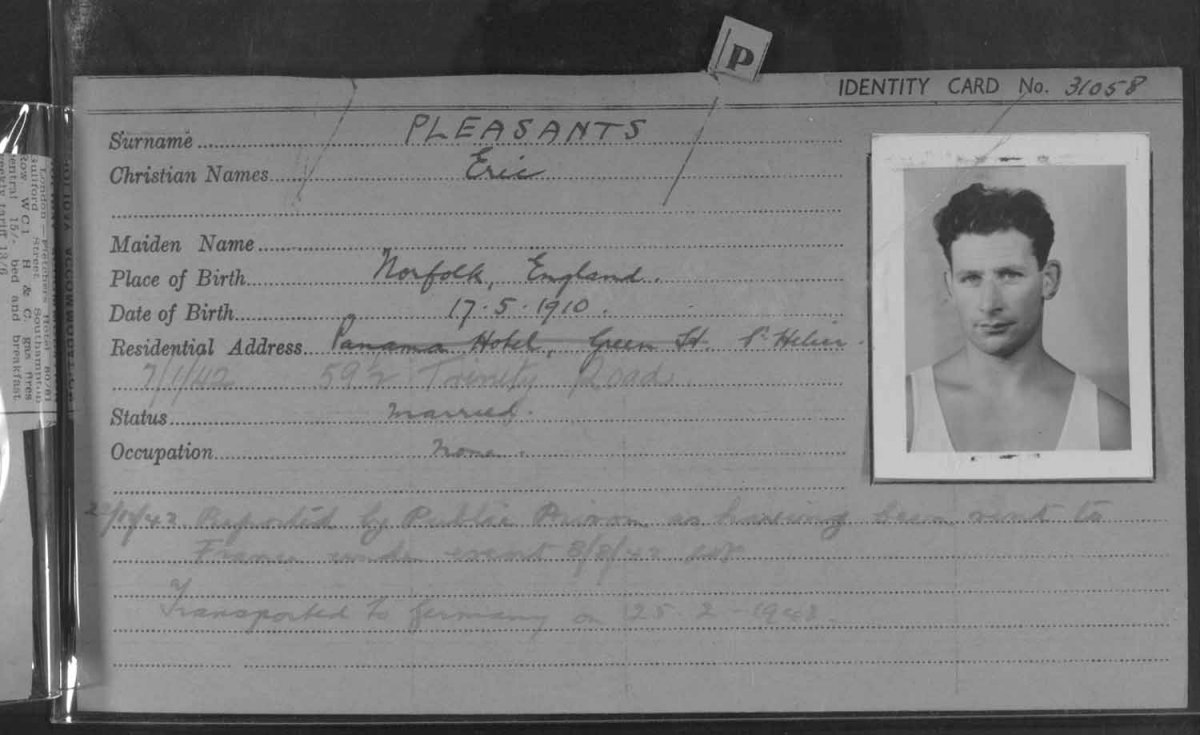 P
IDENTITY CARD No. 31058
Surname PLEASANTS
Christian Names Eric
Maiden Name
Place of Birth Norfolk, England.
Date of Birth 17.5.1910.
Residential Address Panama Hotel, Green St. St Helier.
7/1/42 59½ Trinity Road.
Status Married.
Occupation None.
Reported by Public Prison as having been sent to
France under escort 8/8/42
Transported to Germany on 25.2-1943.
London — Fletchers Hotel 80/81
Guilford Street Southampton
Row WC1 H & C gas fires
central 15/- bed and breakfast.